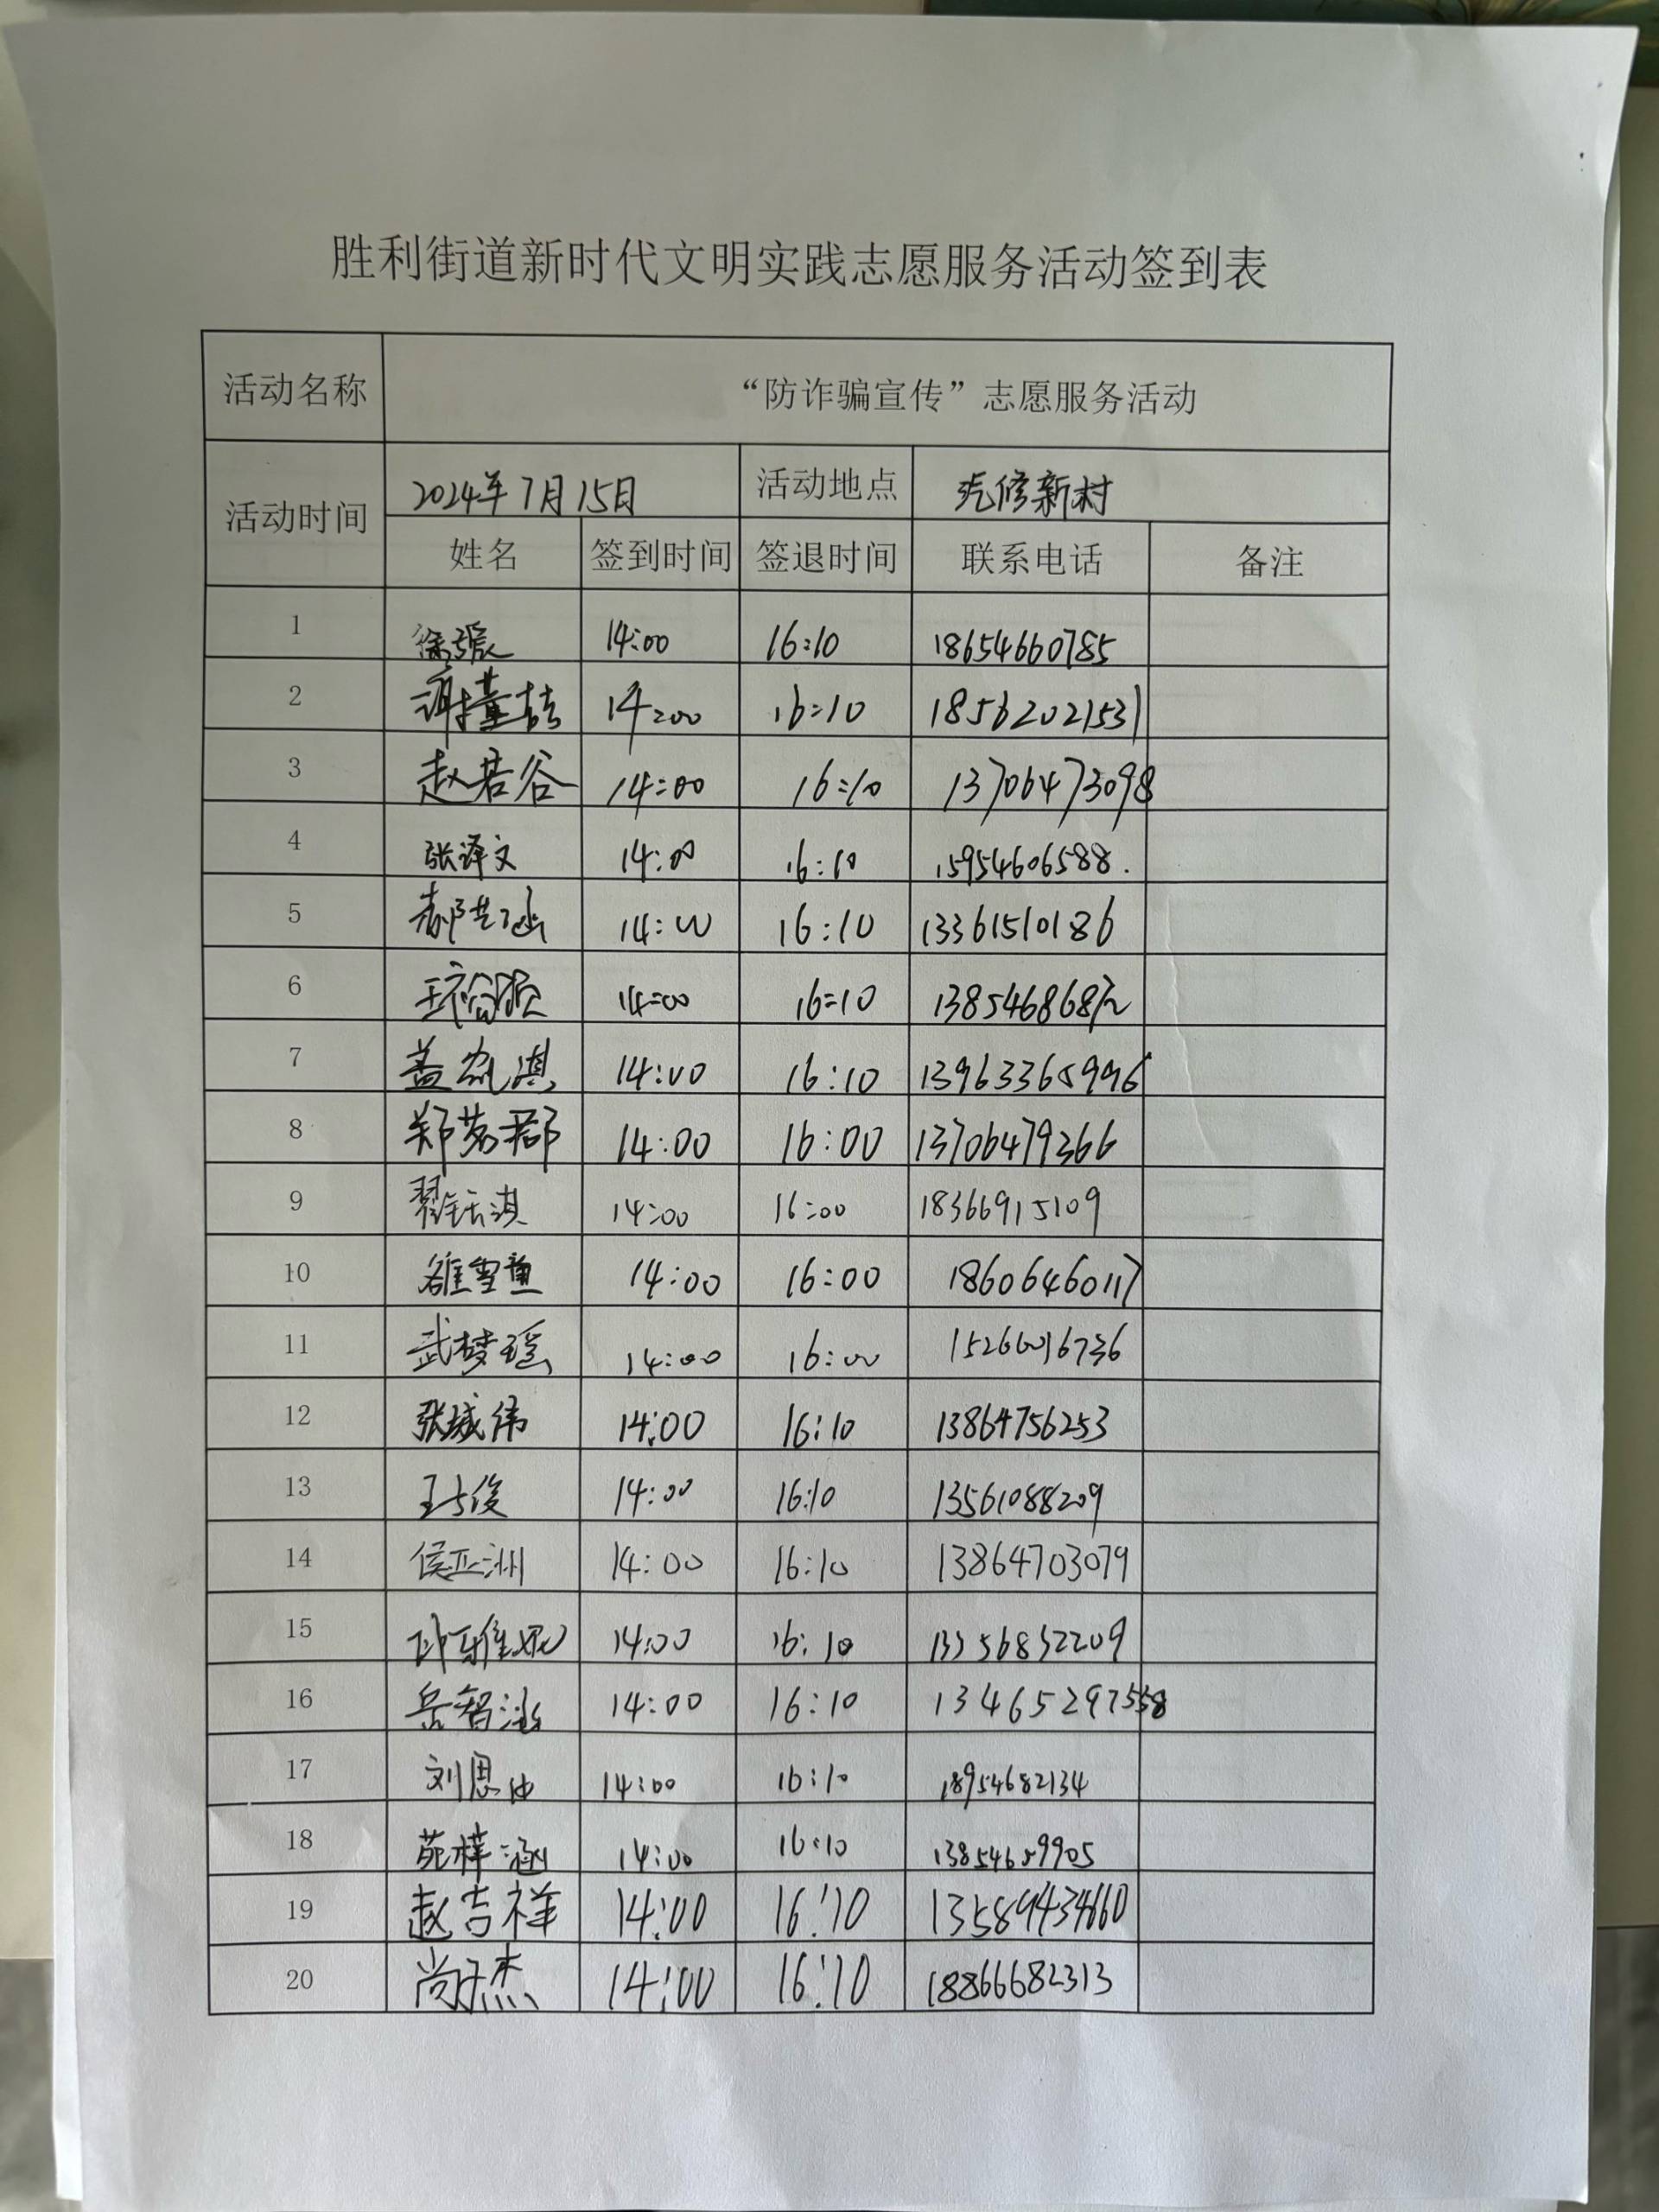 胜利街道新时代文明实践志愿服务活动签到表
活动名称 “防诈骗宣传”志愿服务活动
活动时间 2024年7月15日 活动地点 汽修新村
姓名 签到时间 签退时间 联系电话 备注
1 14:00 16:10 18654660785
2 14:00 16:10 18562021531
3 赵若谷 14:00 16:10 13706473098
4 张译文 14:00 16:10 15954606588.
5 14:00 16:10 13361510186
6 14:00 16:10
7 14:00 16:10 13963365996
8 郑茗郡 14:00 16:00 13706479366
9 翟钰淇 14:00 16:00 18366915109
10 14:00 16:00 18606460117
11 武梦瑶 14:00 16:00
12 张城伟 14:00 16:10 13864756253
13 14:00 16:10 13561088209
14 侯亚洲 14:00 16:10 13864703079
15 14:00 16:10 13356832209
16 岳智泓 14:00 16:10
17 14:00 16:10 18954682134
18 苑梓涵 14:00 16:10 13854609905
19 赵吉祥 14:00 16:10 13589434660
20 尚子杰 14:00 16:10 18866682313